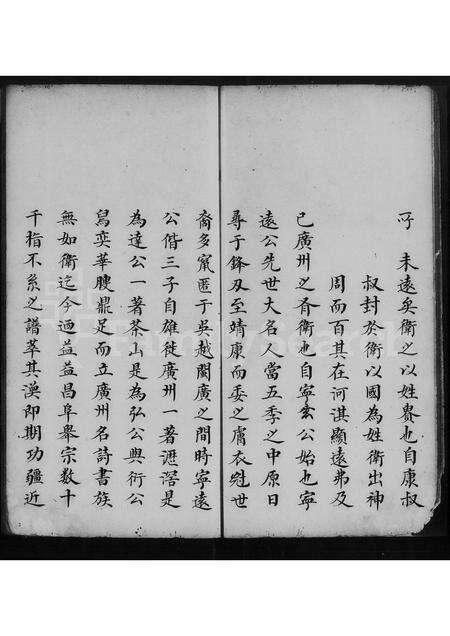 吇 未遠矣衛之以姓貴也自康叔
叔封於衛以國為姓衛出神
周而百其在河淇顯遠弗及
已廣州之有衛也自寧遠公始也寧
遠公先世大名人當五季之中原日
尋于鋒刃至靖康而委之膚衣冠世
裔多竄匿于吳越閩廣之間時寧遠
公偕三子自雄徙廣州一著瀝滘是
為達公一著茶山是為弘公與衍公
舄奕華腴鼎足而立廣州名詩書族
無如衛迄今迺益益昌阜舉宗數十
千指不系之譜萃其渙即期功疆近